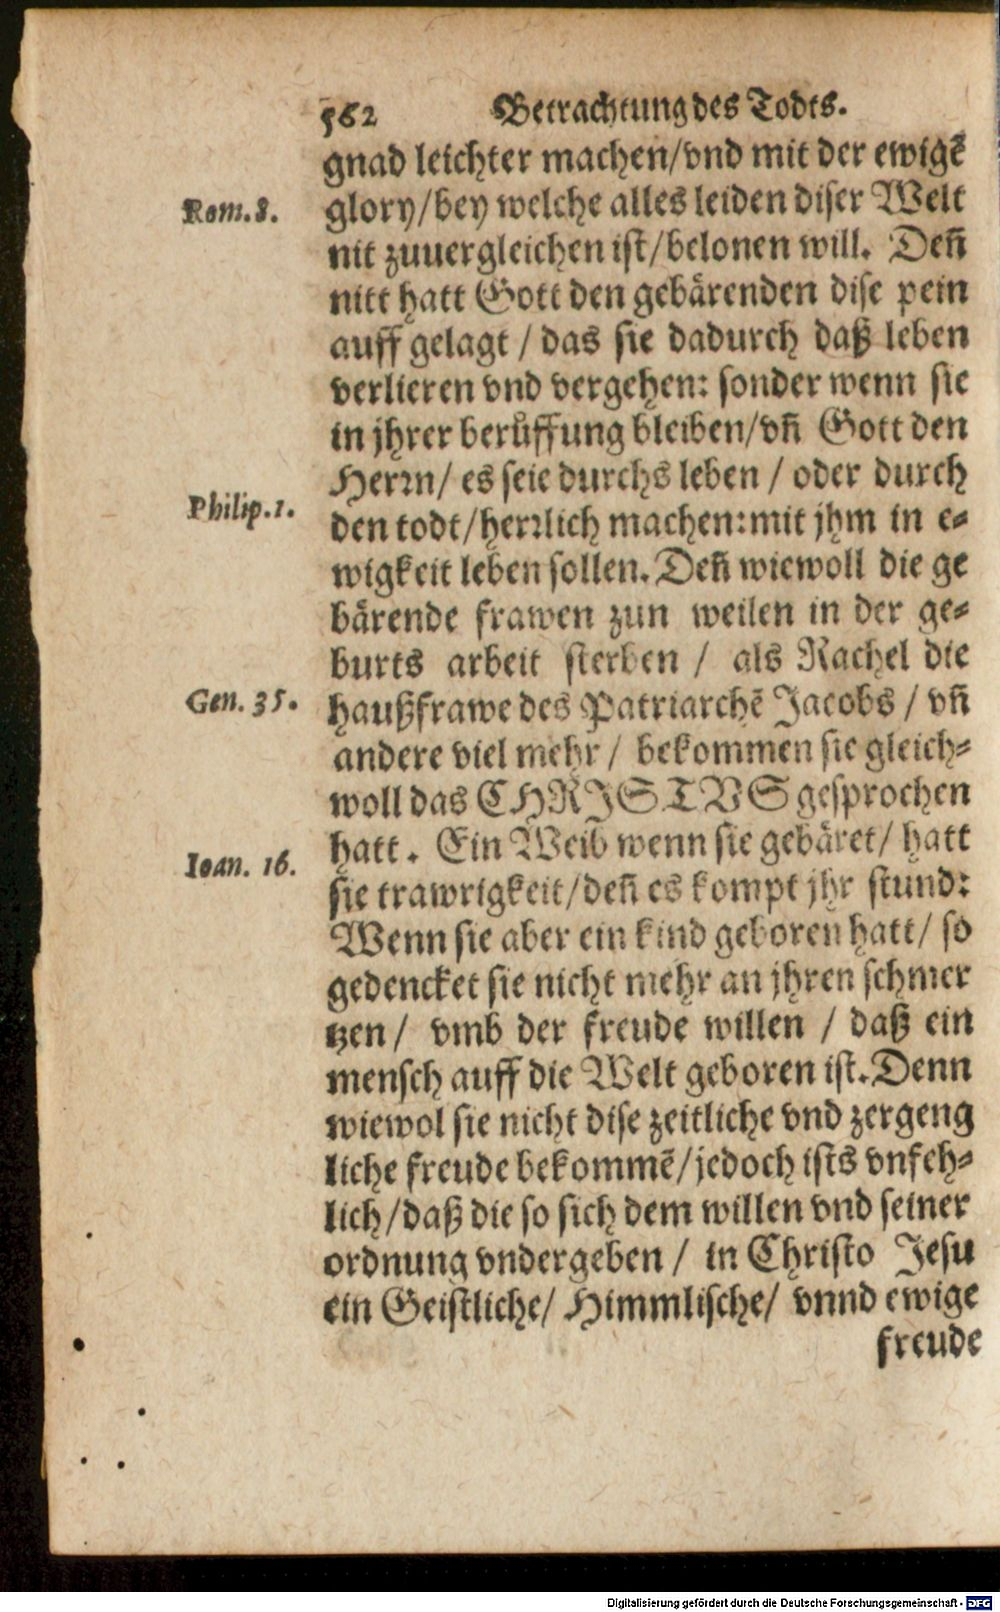 562 Betrachtung des Todts.
gnad leichter machen/vnd mit der ewigẽ
Rom. 8.
glory/bey welche alles leiden diser Welt
nit zuuergleichen ist/belonen will. Deñ
nitt hatt Gott den gebärenden dise pein
auff gelagt / das sie dadurch daß leben
verlieren vnd vergehen: sonder wenn sie
in jhrer berůffung bleiben/vñ Gott den
Herꝛn/ es seie durchs leben / oder durch
Philip. 1.
den todt/herꝛlich machen: mit jhm in e-
wigkeit leben sollen. Deñ wiewoll die ge
bärende frawen zun weilen in der ge-
burts arbeit sterben / als Rachel die
Gen. 35.
haußfrawe des Patriarchẽ Jacobs / vñ
andere viel mehr / bekommen sie gleich-
woll das CHRISTVS gesprochen
hatt. Ein Weib wenn sie gebäret/ hatt
Ioan. 16.
sie trawrigkeit/deñ es kompt jhr stund:
Wenn sie aber ein kind geboren hatt/ so
gedencket sie nicht mehr an jhren schmer
tzen / vmb der freude willen / daß ein
mensch auff die Welt geboren ist. Denn
wiewol sie nicht dise zeitliche vnd zergeng
liche freude bekommẽ/jedoch ists vnfeh-
lich/daß die so sich dem willen vnd seiner
ordnung vndergeben / in Christo Jesu
ein Geistliche/ Himmlische/ vnnd ewige
freude
Digitalisierung gefördert durch die Deutsche Forschungsgemeinschaft - DFG